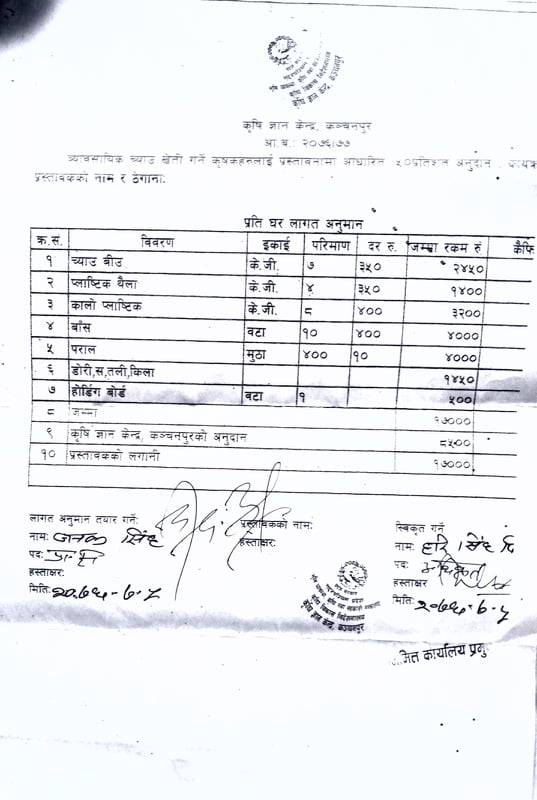 कृषि ज्ञान केन्द्र, कञ्चनपुर
आ.ब.: २०७६।७७
व्यावसायिक च्याउ खेती गर्ने कृषकहरुलाई प्रस्तावनामा आधारित ५०प्रतिशत अनुदान
प्रस्तावकको नाम र ठेगाना:
प्रति घर लागत अनुमान
क्र.सं. विवरण इकाई परिमाण दर रु. जम्मा रकम रुं कैफि
१ च्याउ बीउ के.जी. ७ ३५० २४५०
२ प्लाष्टिक थैला के.जी. ४ ३५० १४००
३ कालो प्लाष्टिक के.जी. ८ ४०० ३२००
४ बाँस वटा १० ४०० ४०००
५ पराल मुठा ४०० १० ४०००
६ डोरी,स,तली,किला १४५०
७ होर्डिङ बोर्ड वटा १ ५००
८ जम्मा १७०००
९ कृषि ज्ञान केन्द्र, कञ्चनपुरको अनुदान ८५००
१० प्रस्तावकको लगानी १७०००
लागत अनुमान तयार गर्ने: प्रस्तावकको नाम: स्विकृत गर्ने
नाम: जनक सिंह हस्ताक्षर: नाम: हरि सिंह
पद: पद: अधिकृत
हस्ताक्षर: हस्ताक्षर
मिति: मिति:
कार्यालय प्रमु